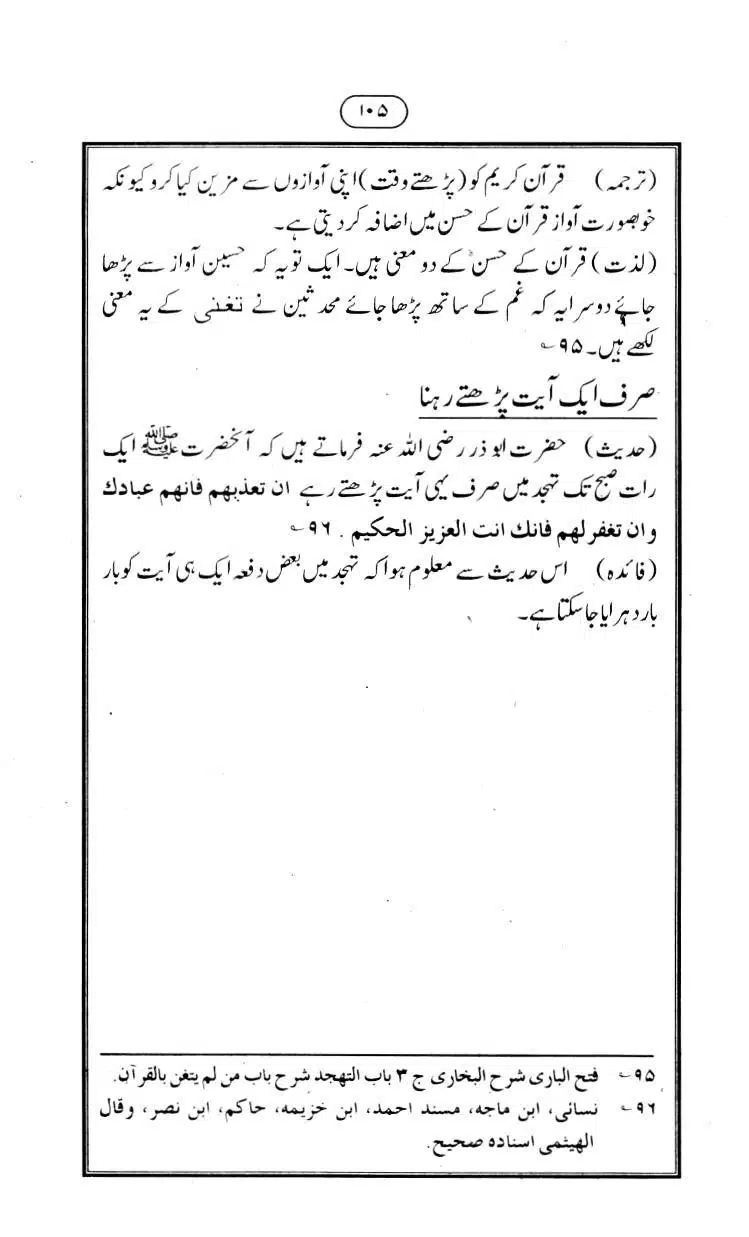 ۱۰۵
(ترجمہ) قرآن کریم کو (پڑھتے وقت) اپنی آوازوں سے مزین کیا کرو کیونکہ
خوبصورت آواز قرآن کے حسن میں اضافہ کر دیتی ہے۔
(لذت) قرآن کے حسن کے دو معنی ہیں۔ ایک تو یہ کہ حسین آواز سے پڑھا
جائے دوسرا یہ کہ غم کے ساتھ پڑھا جائے محدثین نے تغنی کے یہ معنی
لکھے ہیں۔ ۹۵؎
صرف ایک آیت پڑھتے رہنا
(حدیث) حضرت ابوذر رضی اللہ عنہ فرماتے ہیں کہ آنحضرت ﷺ ایک
رات صبح تک تہجد میں صرف یہی آیت پڑھتے رہے ان تعذبهم فانهم عبادك
وان تغفرلهم فانك انت العزیز الحکیم . ۹۶؎
(فائدہ) اس حدیث سے معلوم ہوا کہ تہجد میں بعض دفعہ ایک ہی آیت کو بار
بار دہرایا جا سکتا ہے۔
۹۵؎ فتح الباری شرح البخاری ج ۳ باب التهجد شرح باب من لم یتغن بالقرآن.
۹۶؎ نسائی، ابن ماجه، مسند احمد، ابن خزیمه، حاکم، ابن نصر، وقال
الهیثمی اسناده صحیح.